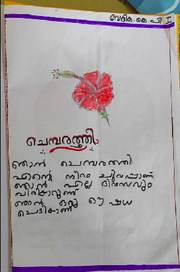 വേദിക. കെ. പി I
ചെമ്പരത്തി
ഞാൻ ചെമ്പരത്തി
എന്റെ നിറം ചുവപ്പാണ്
ഞാൻ എല്ലാ ദിവസവും
വിരിയാറുണ്ട്
ഞാൻ ഒരു ഔഷധ
ചെടിയാണ്